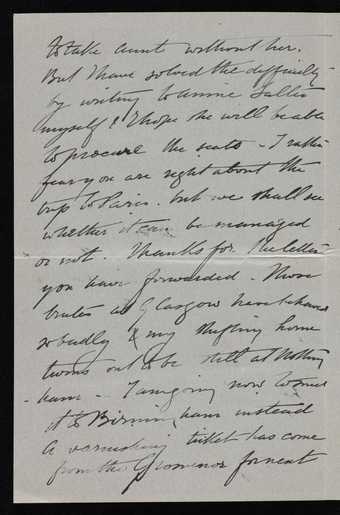 to take aunt without her.
But I have solved the difficulty
by writing to Annie
myself & I hope she will be able
to procure the seats - I rather
fear you are right about the
trip to Paris. but we shall see
whether it can be managed
or not. Thanks for the letters
you have forwarded. Those
brutes at Glasgow have behaved
so badly & my home
turns out to be still at Notting
-ham - I am going now to send
it to Birmingham instead
A varnishing ticket has come
from the Grosvenor for next